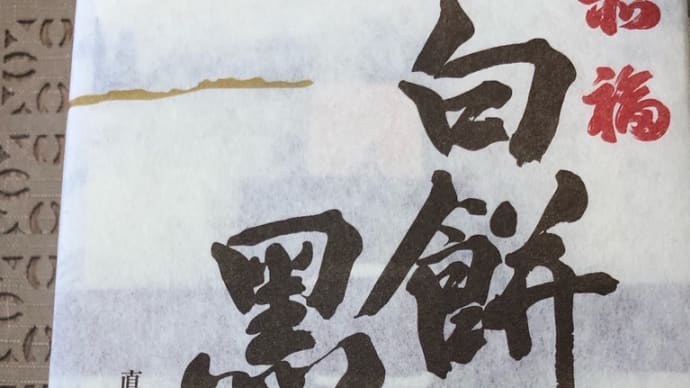 福
白餅
黑
直